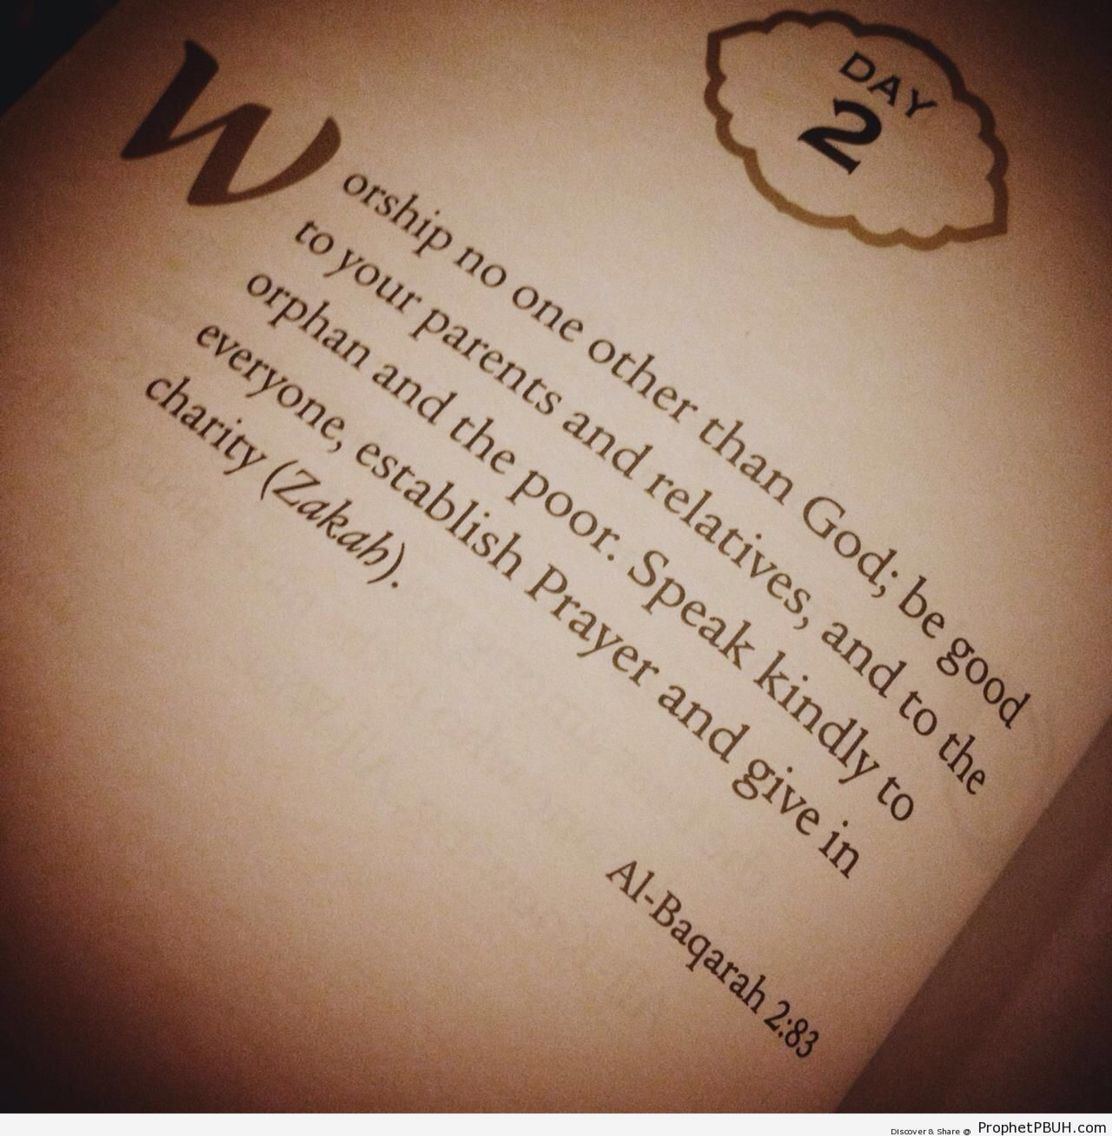 DAY
2
Worship no one other than God; be good
to your parents and relatives, and to the
orphan and the poor. Speak kindly to
everyone, establish Prayer and give in
charity (Zakah).
Al-Baqarah 2:83
Discover & Share @ ProphetPBUH.com